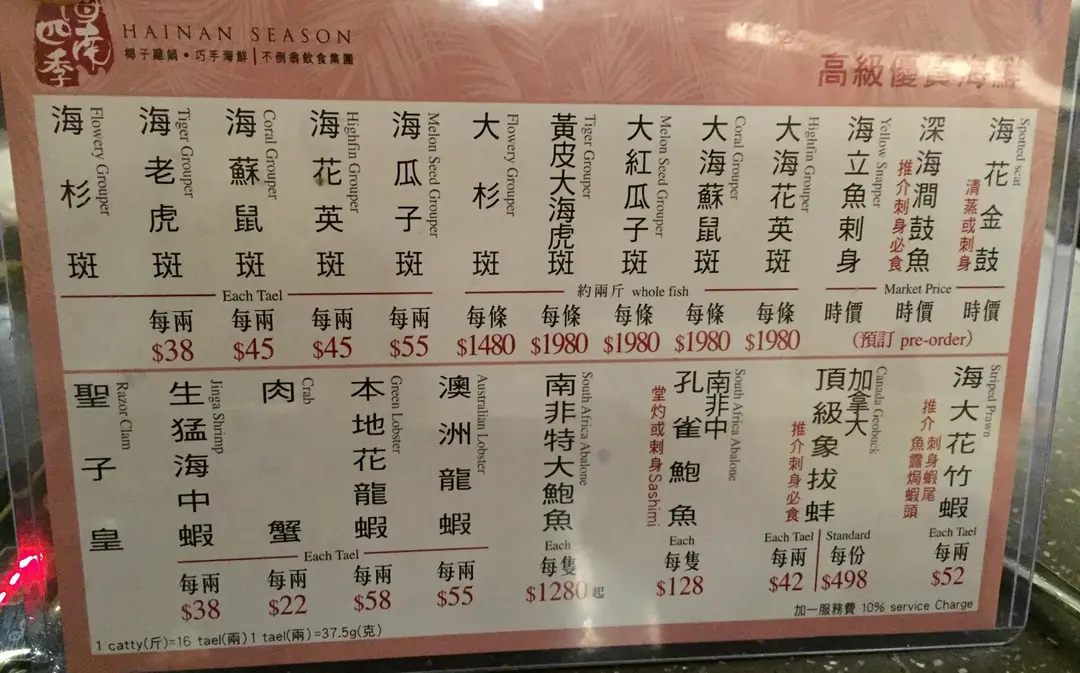 海南四季
HAINAN SEASON
椰子雞鍋•巧手海鮮|不倒翁飲食集團
高級優質海鮮
Spotted scat
海花金鼓
清蒸或刺身
深海澗鼓魚
推介刺身必食
Yellow Snapper
海立魚刺身
Highfin Grouper
大海花英斑
Coral Grouper
大海蘇鼠斑
Melon Seed Grouper
大紅瓜子斑
Tiger Grouper
黃皮大海虎斑
Flowery Grouper
大杉斑
Melon Seed Grouper
海瓜子斑
Highfin Grouper
海花英斑
Coral Grouper
海蘇鼠斑
Tiger Grouper
海老虎斑
Flowery Grouper
海杉斑
Each Tael
約兩斤 whole fish
Market Price
每兩 每兩 每兩 每兩 每條 每條 每條 每條 每條 時價 時價 時價
$38 $45 $45 $55 $1480 $1980 $1980 $1980 $1980 (預訂 pre-order)
Striped Prawn
海大花竹蝦
推介 刺身蝦尾
魚露焗蝦頭
Canada Geobuck
加拿大
頂級象拔蚌
推介刺身必食
South Africa Abalone
南非中
孔雀鮑魚
堂灼或刺身Sashimi
South Africa Abalone
南非特大鮑魚
Australian Lobster
澳洲龍蝦
Green Lobster
本地花龍蝦
Crab
肉蟹
Jinga Shrimp
生猛海中蝦
Razor Clam
聖子皇
Each Tael
每兩 每兩 每兩 每兩
$38 $22 $58 $55
Each
每隻
$1280起
Each
每隻
$128
Each Tael
每兩
$42
Standard
每份
$498
Each Tael
每兩
$52
加一服務費 10% service Charge
1 catty(斤)=16 tael(兩) 1 tael(兩)=37.5g(克)